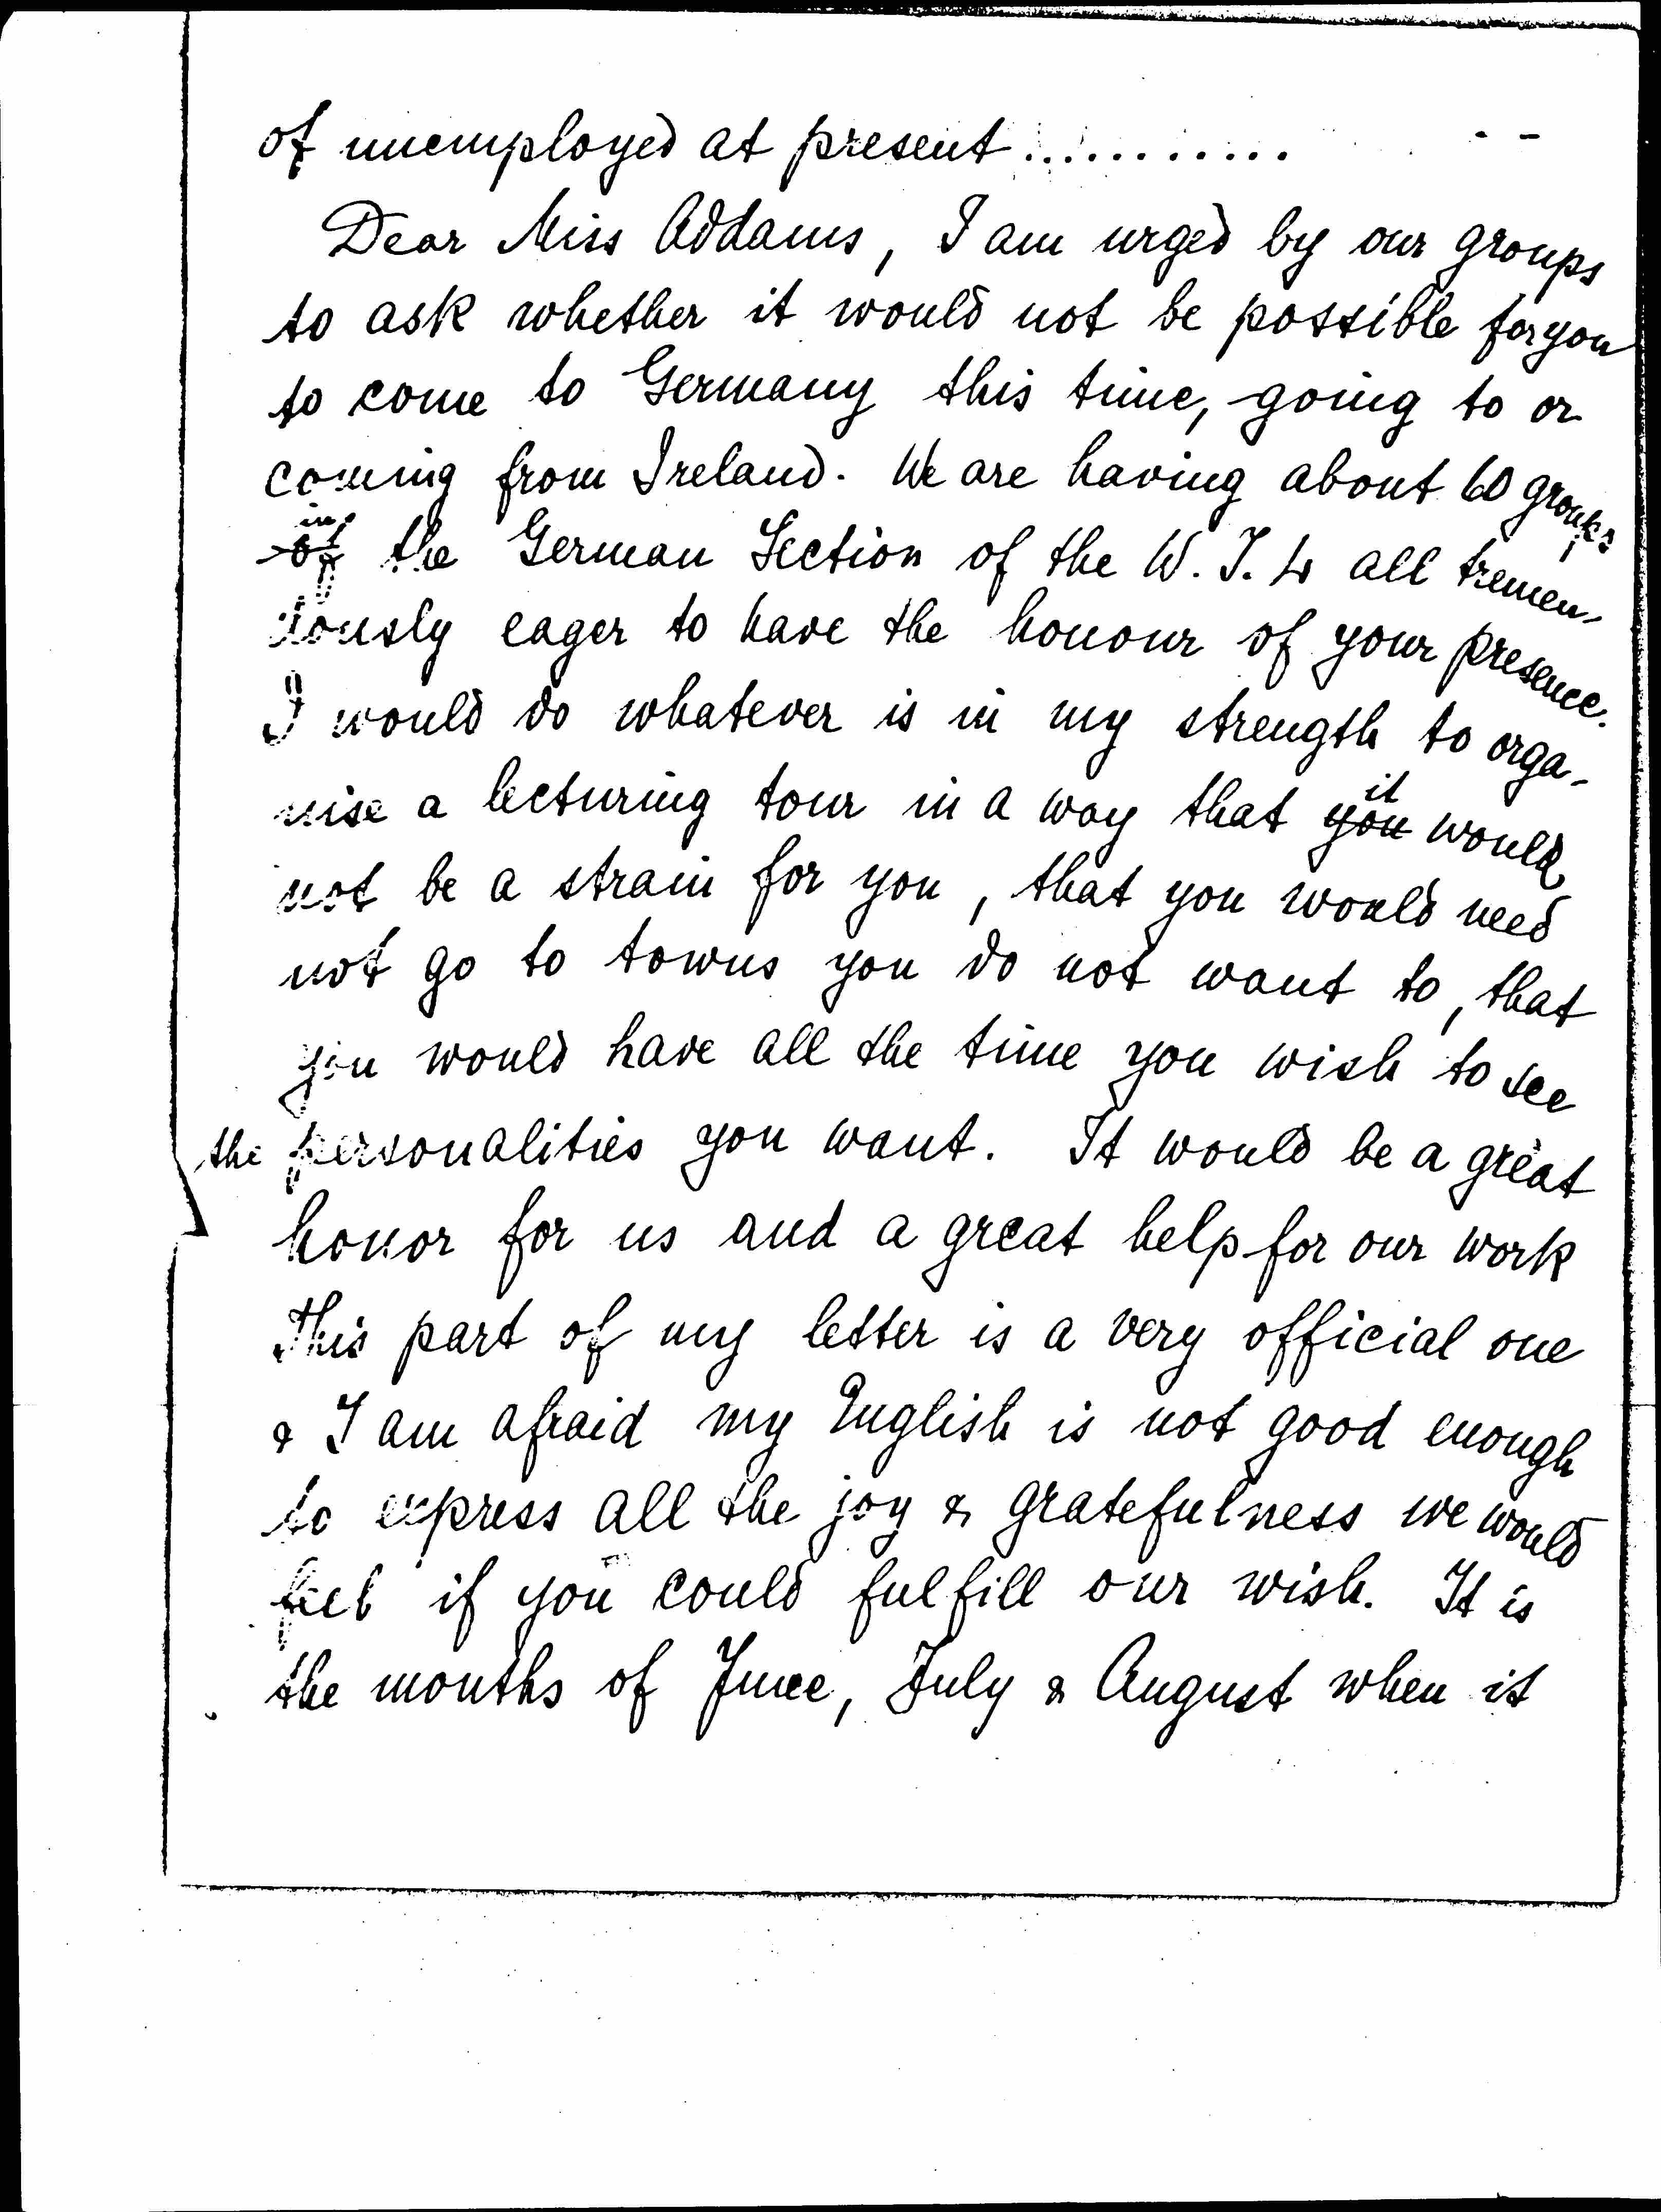 of unemployed at present ...........
Dear Miss Addams, I am urged by our groups
to ask whether it would not be possible for you
to come to Germany this time, going to or
coming from Ireland. We are having about 60 groups
in
of the German Section of the W. I. L all tremen-
dously eager to have the honour of your presence.
I would do whatever is in my strength to orga-
nise a lecturing tour in a way that you it would
not be a strain for you, that you would need
not go to towns you do not want to, that
you would have all the time you wish to see
the personalities you want. It would be a great
honor for us and a great help for our work
This part of my letter is a very official one
& I am afraid my English is not good enough
to express all the joy & gratefulness we would
feel if you could fulfill our wish. It is
the months of June, July & August when it